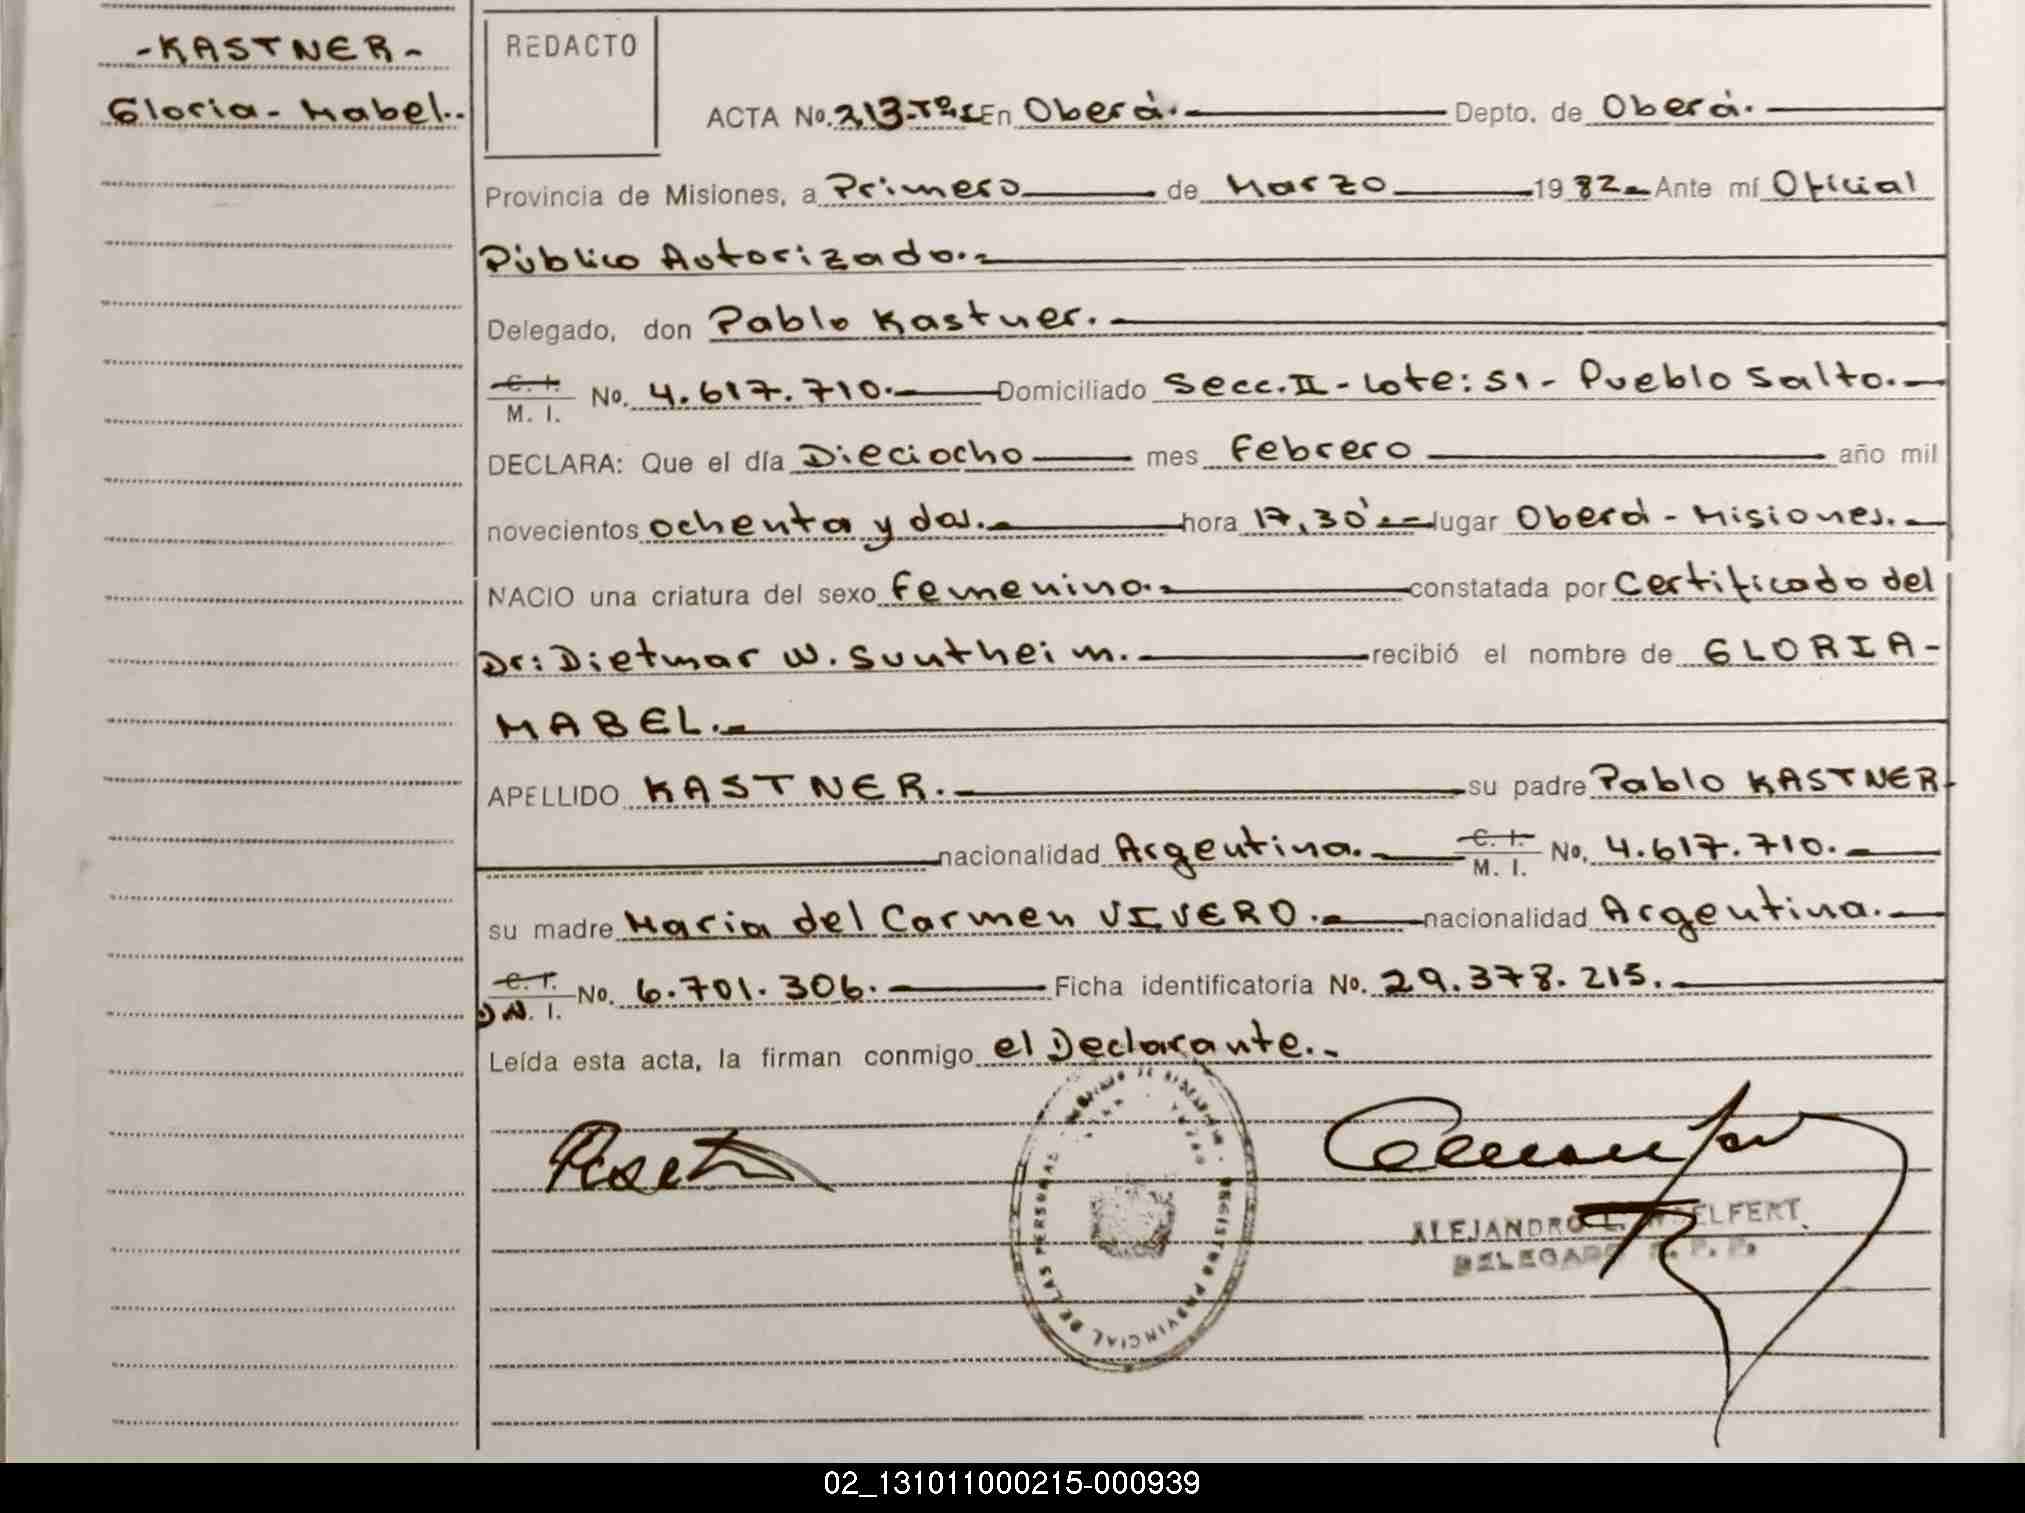 -KASTNER-
Gloria-Mabel.-
REDACTO
ACTA No. 213-Tº1 En Oberá.- Depto. de Oberá.-
Provincia de Misiones, a Primero de Marzo 1982.- Ante mí Oficial
Público Autorizado.-
Delegado, don Pablo Kastner.-
C. I.
M. I. No. 4.617.710.- Domiciliado Secc.II-Lote:51-Pueblo Salto.-
DECLARA: Que el día Dieciocho mes Febrero año mil
novecientos ochenta y dos.- hora 17,30'.- lugar Oberá-Misiones.-
NACIO una criatura del sexo Femenino.- constatada por Certificado del
Dr: Dietmar W. Suntheim.- recibió el nombre de GLORIA-
MABEL.-
APELLIDO KASTNER.- su padre Pablo KASTNER-
nacionalidad Argentina.- C. I.
M. I. No. 4.617.710.-
su madre Maria del Carmen VIVERO.- nacionalidad Argentina.-
C. I.
D N. I. No. 6.701.306.- Ficha identificatoria No. 29.378.215.-
Leída esta acta, la firman conmigo el Declarante.-
REGISTRO PROVINCIAL DE LAS PERSONAS
ALEJANDRO L. ELFERT
DELEGADO R. P. P.
02_131011000215-000939